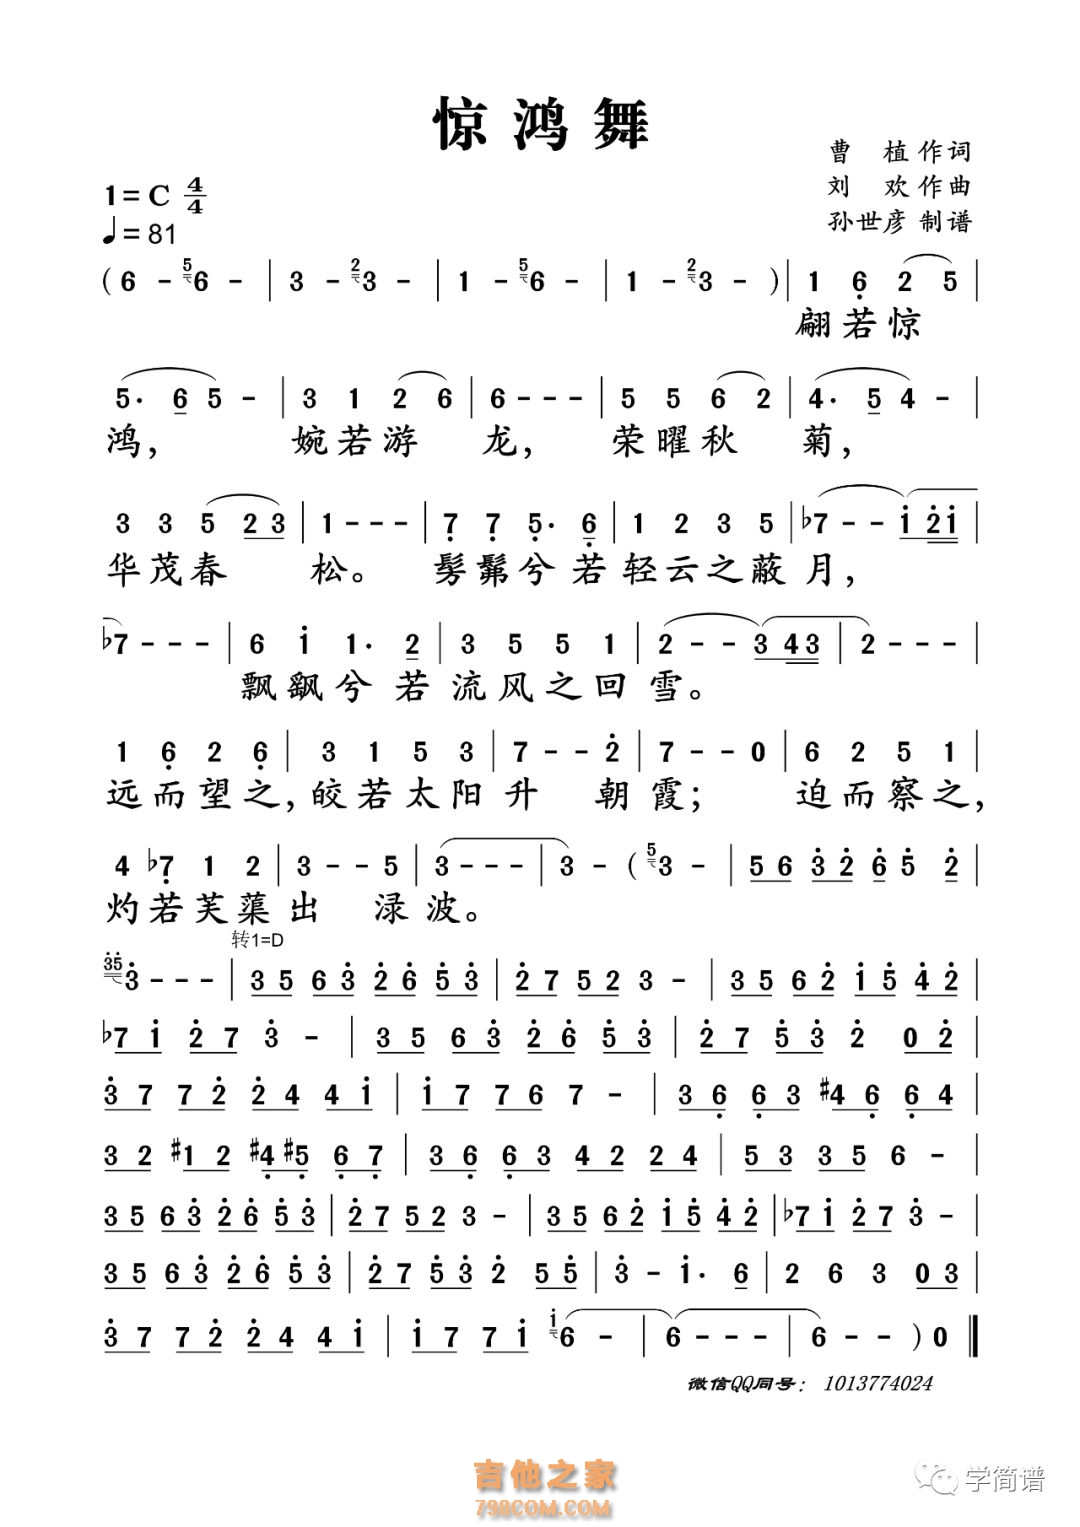 惊鸿舞
曹 植 作词
1=C 4/4
刘 欢 作曲
♩=81
孙世彦 制谱
( 6 - 5 6 - | 3 - 2 3 - | 1 - 5 6 - | 1 - 2 3 - ) | 1 6̣ 2 5 |
翩若惊
5· 6 5 - | 3 1 2 6 | 6 - - - | 5 5 6 2 | 4· 5 4 - |
鸿, 婉若游 龙, 荣曜秋 菊,
3 3 5 2 3 | 1 - - - | 7̣ 7̣ 5̣· 6̣ | 1 2 3 5 | ♭7 - - i 2̇ i |
华茂春 松。 髣髴兮若轻云之蔽月,
♭7 - - - | 6 i 1· 2 | 3 5 5 1 | 2 - - 3 4 3 | 2 - - - |
飘飖兮若流风之回雪。
1 6̣ 2 6̣ | 3 1 5 3 | 7 - - 2̇ | 7 - - 0 | 6 2 5 1 |
远而望之,皎若太阳升 朝霞; 迫而察之,
4 ♭7̣ 1 2 | 3 - - 5 | 3 - - - | 3 - ( 5 3 - | 5 6 3̇ 2̇ 6̇ 5̇ 2̇ |
灼若芙蕖出 渌波。
转1=D
3̇5̇ 3̇ - - - | 3 5 6 3̇ 2̇ 6̇ 5̇ 3̇ | 2̇ 7 5 2 3 - | 3 5 6 2̇ i 5̇ 4̇ 2̇ |
♭7 i 2̇ 7 3̇ - | 3 5 6 3̇ 2̇ 6̇ 5̇ 3̇ | 2̇ 7 5̇ 3̇ 2̇ 0 2̇ |
3̇ 7 7 2̇ 2̇ 4 4 i | i 7 7 6 7 - | 3 6̣ 6̣ 3 #4 6̣ 6̣ 4 |
3 2 #1 2 #4̣ #5̣ 6̣ 7̣ | 3 6̣ 6̣ 3 4 2 2 4 | 5 3 3 5 6 - |
3 5 6 3̇ 2̇ 6̇ 5̇ 3̇ | 2̇ 7 5 2 3 - | 3 5 6 2̇ i 5̇ 4̇ 2̇ | ♭7 i 2̇ 7 3̇ - |
3 5 6 3̇ 2̇ 6̇ 5̇ 3̇ | 2̇ 7 5̇ 3̇ 2̇ 5 5̇ | 3̇ - i· 6 | 2 6 3 0 3 |
3̇ 7 7 2̇ 2̇ 4 4 i | i 7 7 i i 6 - | 6 - - - | 6 - ) 0 ‖
微信QQ同号: 1013774024
吉他之家
798COM.COM
学简谱